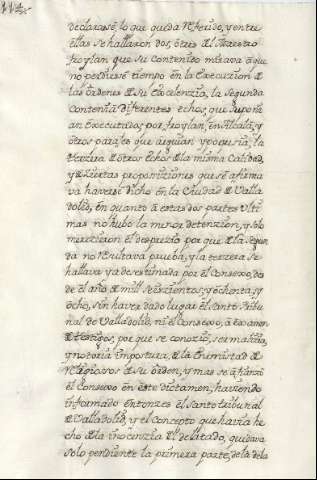 114
declarase lo que queda referido, y entre
ellas se hallaron dos, otras del Maestro
froylan, que su Contenido mirava à que
no perdiese tiempo en la Execuzion de
las órdenes de su Excelenzia, la segunda
Contenia diferentes echos, que suponi
an Executados por froylan, en Alcalà, y
otros parajes que arguian ypocresia, la
terzera de otros echos de la misma Calidad,
y de Ziertas proposiciones que se afirma
va haverse dicho en la Ciudad de Valla
dolid, en quanto à estas dos partes Ulti
mas no hubo la menor detenzion, y solo
merecieron el desprezio por que de la segun
da no Resultava prueba, y la terzera se
hallava ya desestimada por el Consexo, des
de el año de mill seiscientos, y ochenta, y
ocho, sin haver dado lugar el santo tribu
nal de Valladolid, ni el Consexo, à examen
de testigos, por que se conozio, ser malizia,
y notoria impostura, de la Enemistad de
Religiosos de su orden, y mas se afianzò
el Consexo en este dictamen, haviendo
informado entonzes el santo tribunal
de Valladolid, y el Concepto que havia he
cho de la inocenzia del delatado, quedava
solo pendiente la primera parte, de la dela